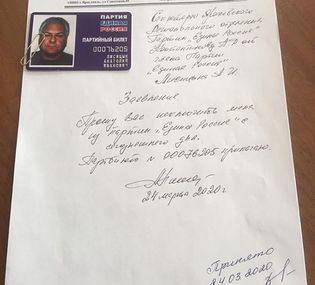 ПАРТИЯ
ЕДИНАЯ
РОССИЯ
ПАРТИЙНЫЙ БИЛЕТ
00076205
ЛИСИЦЫН
АНАТОЛИЙ
ИВАНОВИЧ
Секретарю
Регионального отделения
Партии „Единая Россия"
члена Партии
„Единая Россия"
Лисицына А.И.
Заявление
Прошу Вас исключить меня
из Партии „Единая Россия" с
сегодняшнего дня.
Партбилет № 00076205 прилагаю.
24 марта 2020г
Принято
24.03.2020